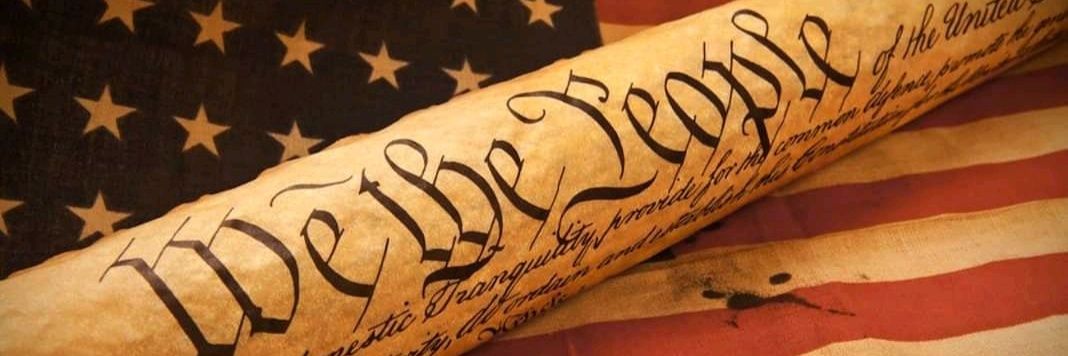 We the People of the United
mestic Tranquility, provide for the common defence, promote the
rity, do ordain and establish this Constitution